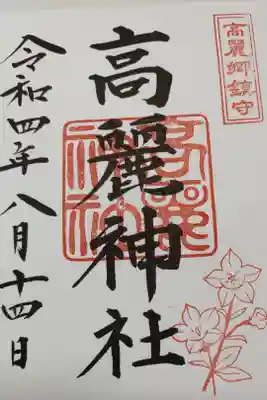 高麗郷鎮守
高麗神社
令和四年八月十四日
高麗神社